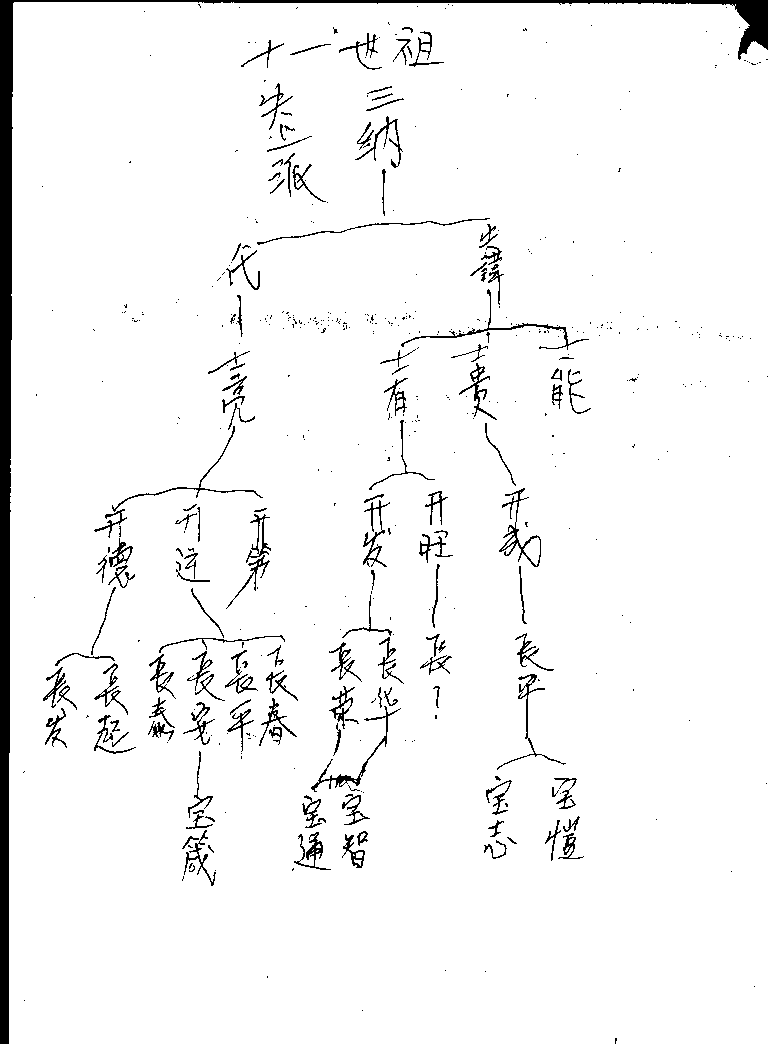 十一世祖
三纳
派
代
失諱
士亮
士有
士貴
士能
开德
开运
开第
开发
开旺
开成
長发
長起
長泰
長安
長平
長春
長荣
長华
長?
長平
宝箴
宝通
宝智
宝志
宝愷